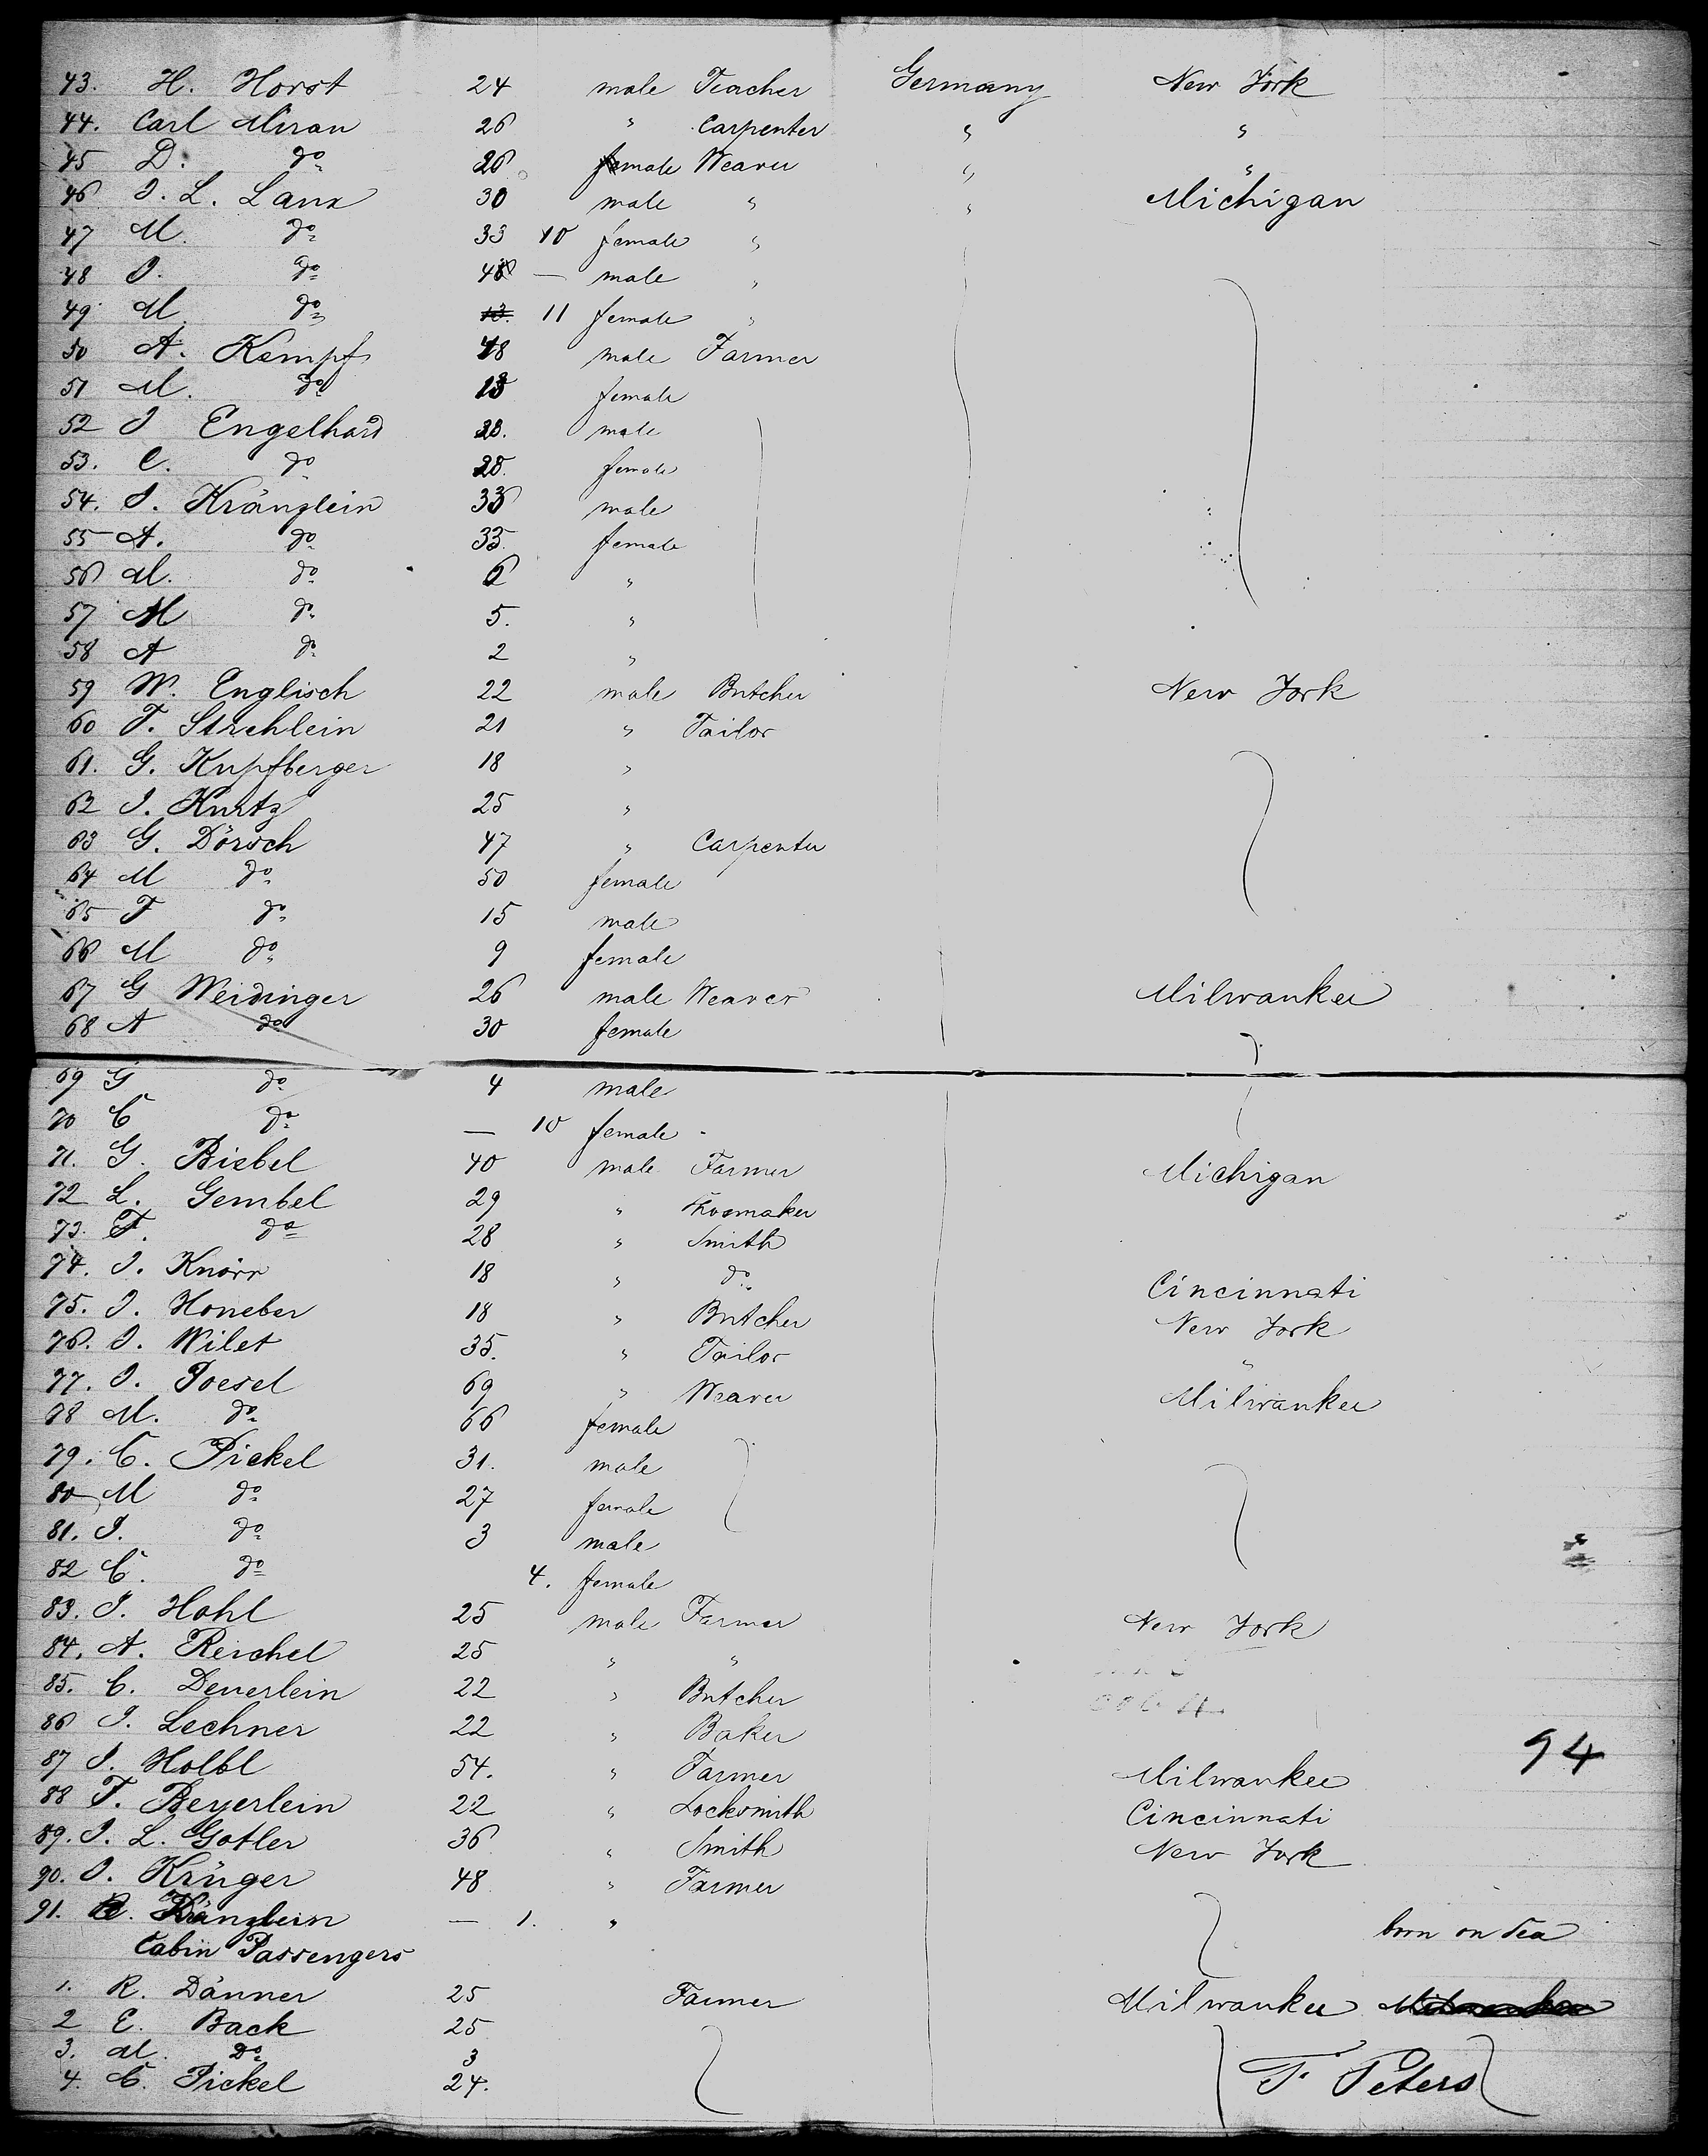 43. H. Horst 24 male Teacher Germany New York
44. Carl Miran 26 " Carpenter " "
45 D. do 26 female Weaver " "
46 I. L. Lanx 30 male " " Michigan
47 M. do 33 10 female "
48 I. do — male "
49 M. do 11 female "
50 A. Kempf 48 male Farmer
51 M. do 18 female
52 I Engelhard 28. male
53. C. do 28. female
54. I. Kränzlein 36 male
55 A. do 33. female
56 M. do 6 "
57 M do 5. "
58 A do 2 "
59 W. Englisch 22 male Butcher New York
60 F. Strehlein 21 " Tailor
61. G. Kupfberger 18 "
62 I. Kurtz 25 "
63 G. Dörsch 47 " Carpenter
64 M do 50 female
65 F do 15 male
66 M do 9 female
67 G Weidinger 26 male Weaver Milwaukee
68 A do 30 female
69 G do 4 male
70 C do — 10 female
71. G. Biebel 40 male Farmer Michigan
72 L. Gembel 29 " Shoemaker
73. F. do 28 " Smith
74. I. Knörr 18 " do Cincinnati
75. I. Honeber 18 " Butcher New York
76. I. Wilet 35. " Tailor "
77. I. Poesel 69 " Weaver Milwaukee
78 M. do 66 female
79. C. Pickel 31. male
80 M do 27 female
81. I. do 3 male
82 C. do 4. female
83. I. Hohl 25 male Farmer New York
84. A. Reichel 25 " "
85. C. Deuerlein 22 " Butcher
86 I. Lechner 22 " Baker
94
87 I. Holbl 54. " Farmer Milwaukee
88 F. Beyerlein 22 " Locksmith Cincinnati
89. I. L. Gotler 36 " Smith New York
90. I. Krüger 48 " Farmer
91. Kränzlein — 1. " born on Sea
Cabin Passengers
1. R. Dänner 25 Farmer Milwaukee
2 E. Back 25
3. M. Do 3
4. C. Pickel 24.
F. Peters